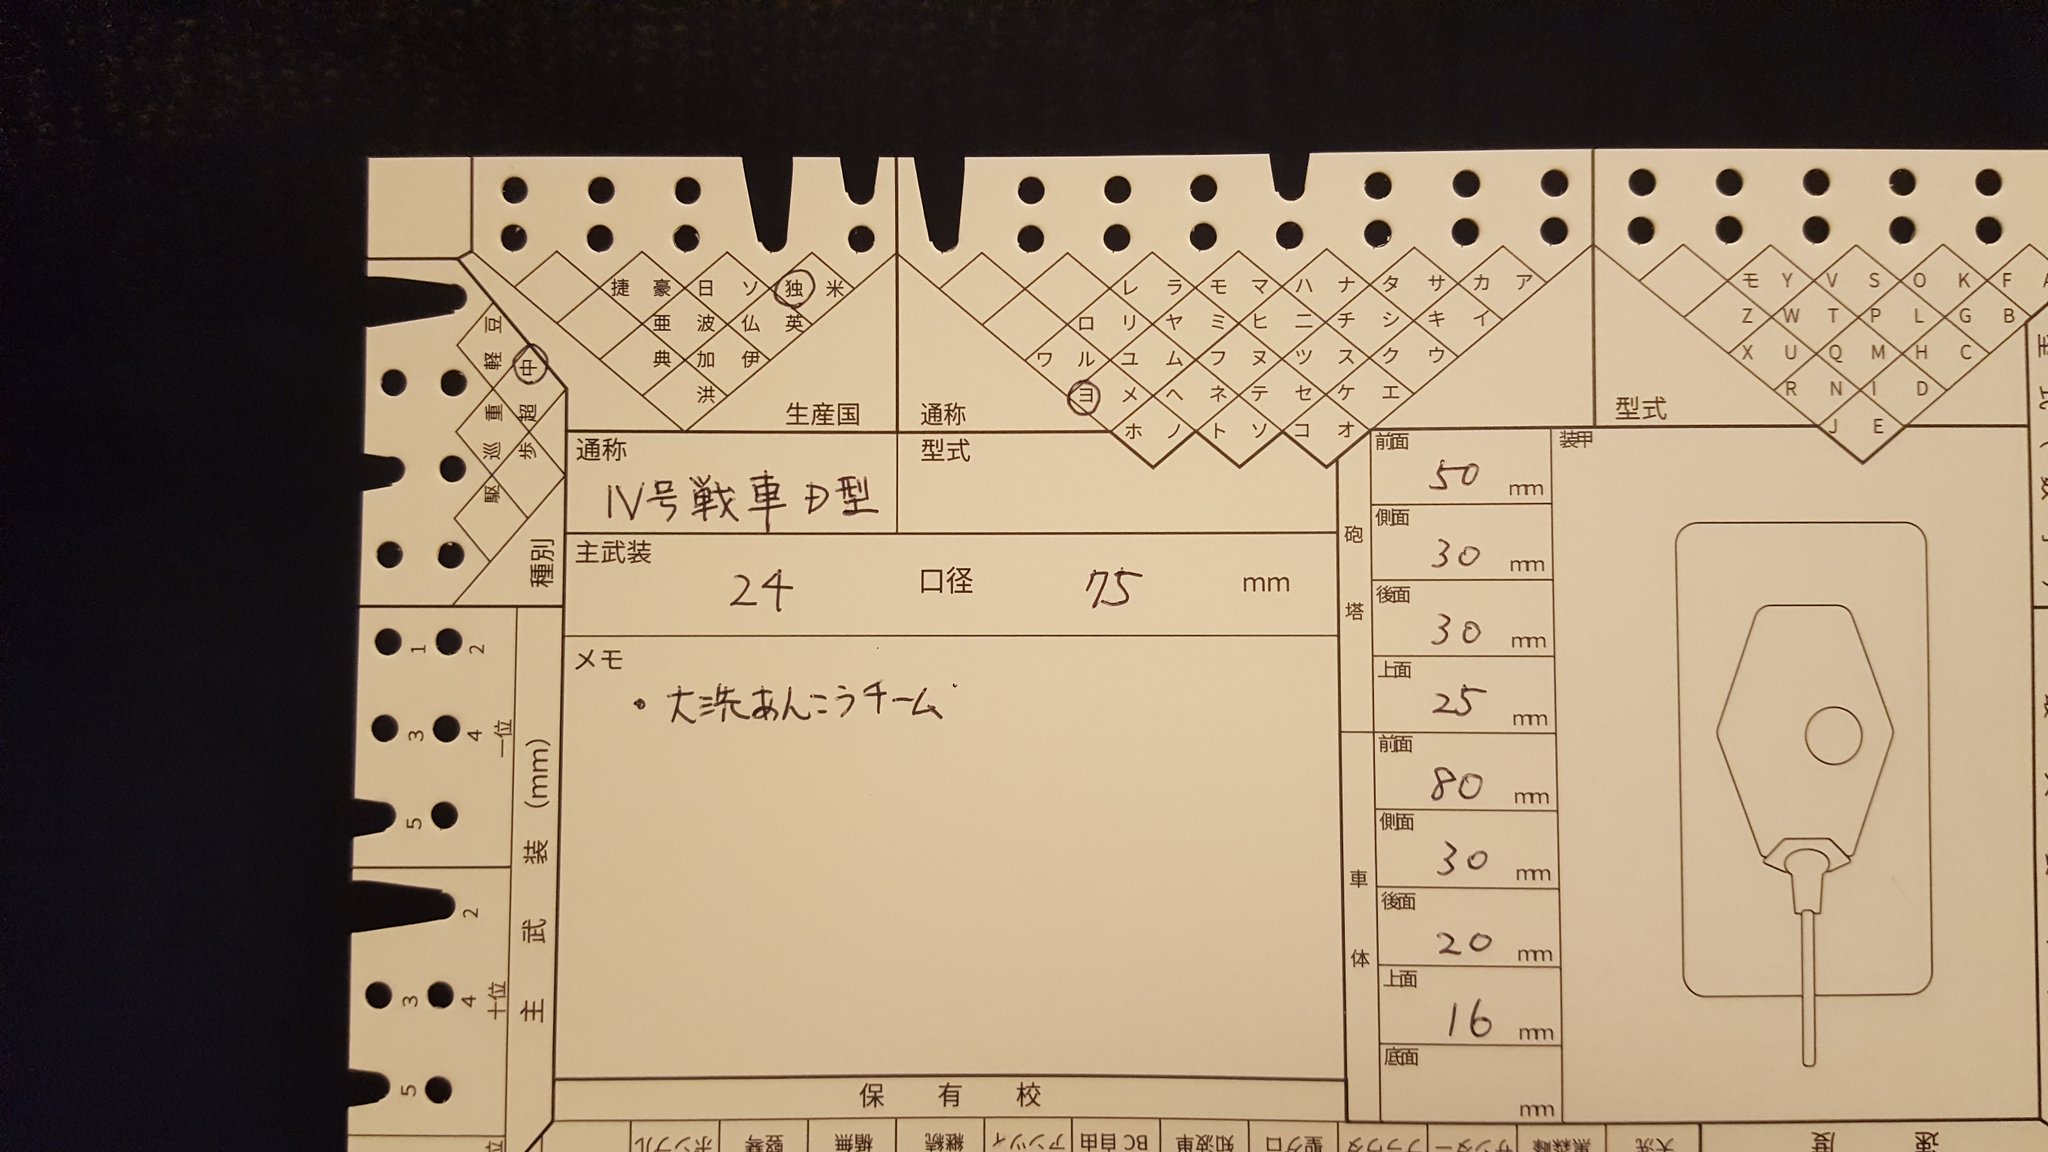 捷 豪 日 ソ 独 米
亜 波 仏 英
典 加 伊
洪
生産国
レ ラ モ マ ハ ナ タ サ カ ア
ロ リ ヤ ミ ヒ ニ チ シ キ イ
ワ ル ユ ム フ ヌ ツ ス ク ウ
ヨ メ ヘ ネ テ セ ケ エ
ホ ノ ト ソ コ オ
通称
モ Y V S O K F A
Z W T P L G B
X U Q M H C
R N I D
J E
型式
豆 軽 中
重 超
巡 歩
駆
種別
通称
IV号戦車D型
型式
主武装
24 口径 75 mm
メモ
・大洗あんこうチーム
砲塔
前面 50 mm
側面 30 mm
後面 30 mm
上面 25 mm
車体
前面 80 mm
側面 30 mm
後面 20 mm
上面 16 mm
底面 mm
装甲
1 2
3 4
5
一位
2
3 4
5
十位
主武装 (mm)
保有校
ボンプル 竪琴 楯無 継続 アンツィ BC自由 知波単 聖グロ プラウダ サンダー 黒森峰 大洗
速度